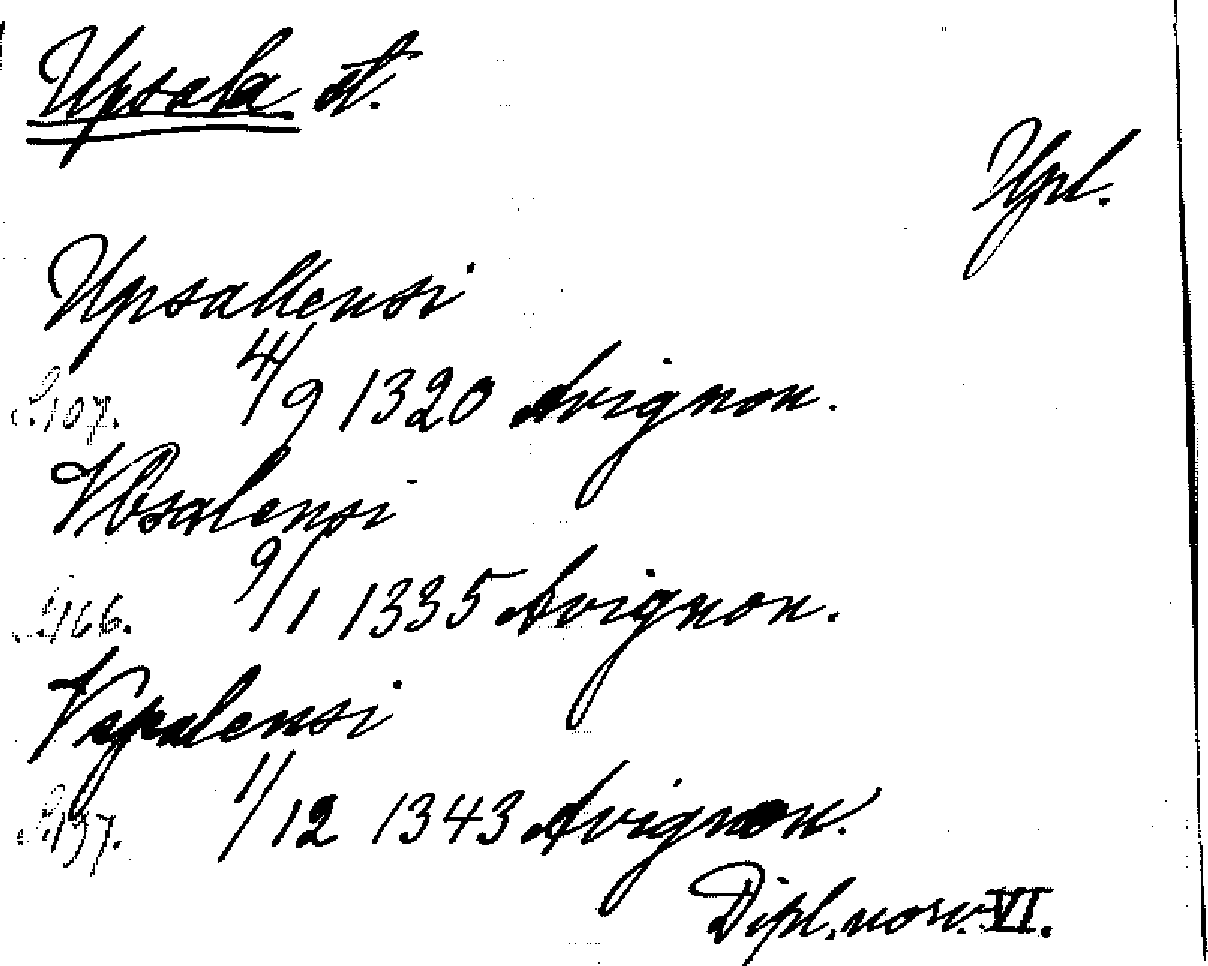 Upsala st.
Upl.
Upsallensi
S. 107. 4/9 1320 Avignon.
Vbsalensi
S. 166. 9/1 1335 Avignon.
Vspalensi
S. 197. 1/12 1343 Avignon.
Dipl. norv. VI.